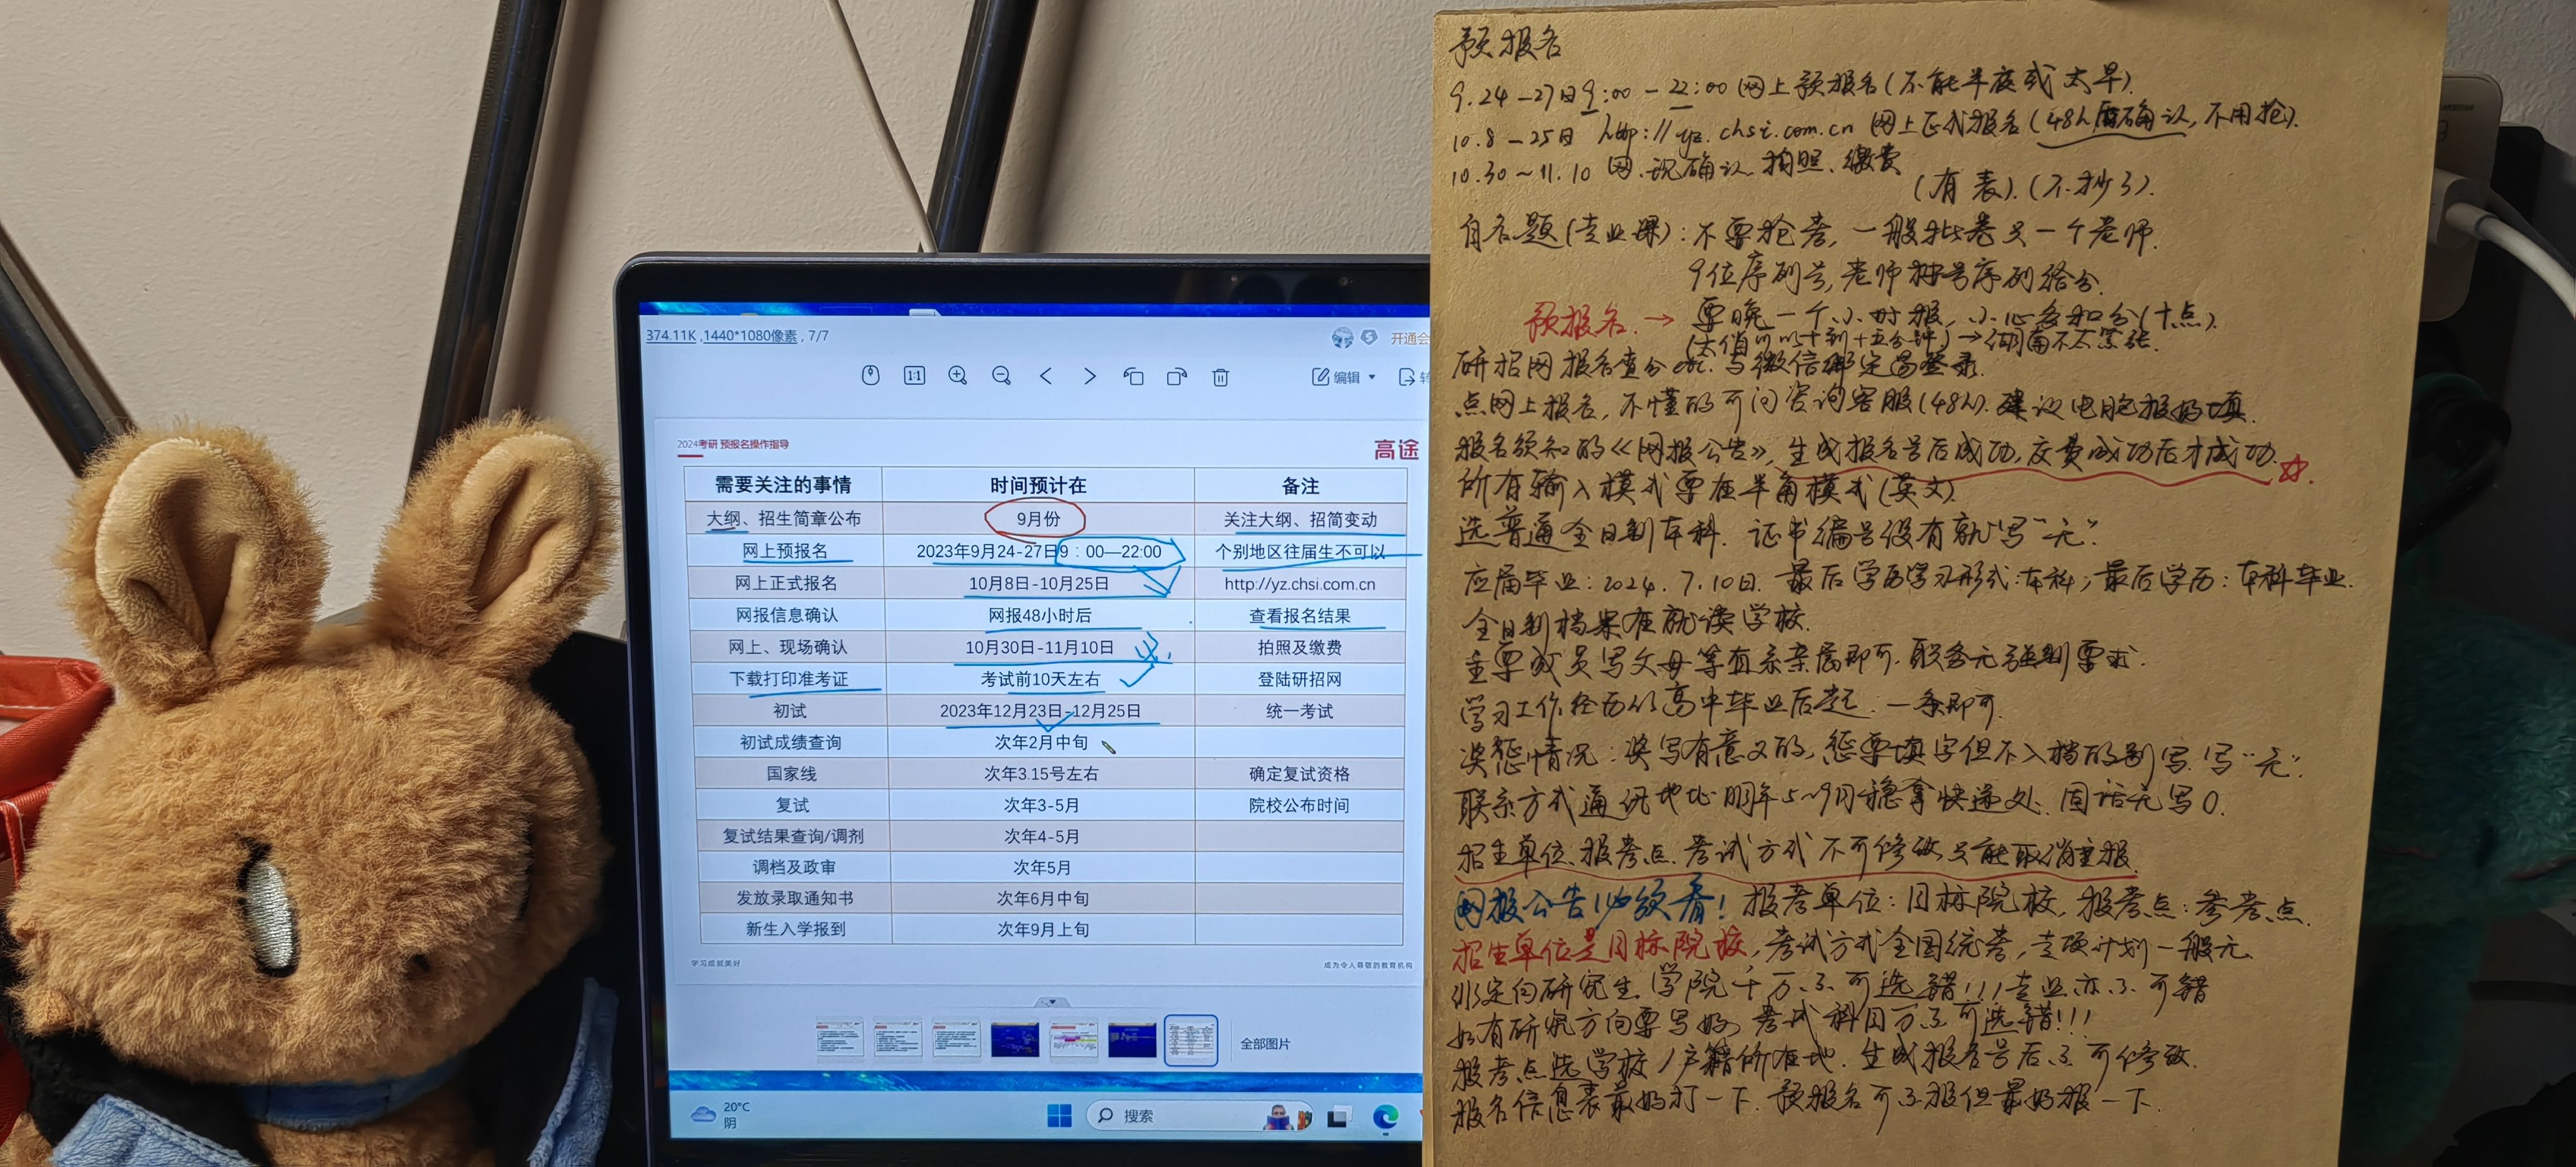 374.11K ,1440*1080像素 , 7/7
开通会
1:1
编辑
转
2024考研 预报名操作指导
高途
需要关注的事情 时间预计在 备注
大纲、招生简章公布 9月份 关注大纲、招简变动
网上预报名 2023年9月24-27日9：00—22:00 个别地区往届生不可以
网上正式报名 10月8日-10月25日 http://yz.chsi.com.cn
网报信息确认 网报48小时后 查看报名结果
网上、现场确认 10月30日-11月10日 拍照及缴费
下载打印准考证 考试前10天左右 登陆研招网
初试 2023年12月23日-12月25日 统一考试
初试成绩查询 次年2月中旬
国家线 次年3.15号左右 确定复试资格
复试 次年3-5月 院校公布时间
复试结果查询/调剂 次年4-5月
调档及政审 次年5月
发放录取通知书 次年6月中旬
新生入学报到 次年9月上旬
学习成就美好
成为令人尊敬的教育机构
全部图片
20°C
阴
搜索
预报名
9.24-27日9:00-22:00网上预报名(不能半夜或太早).
10.8-25日 http://yz.chsi.com.cn 网上正式报名(48h后确认,不用抢).
10.30~11.10 网、现确认、拍照、缴费
(有表).(不抄了).
自名题(专业课):不要抢考,一般批卷只一个老师.
9位序列号,老师按号序列给分.
预报名→ 要晚一个小时报,小心各扣分(十点).
研招网报名查分etc.与微信绑定过登录.
点网上报名,不懂的可问咨询客服(48h).建议电脑报好填.
报名须知的《网报公告》,生成报名号后成功,交费成功后才成功.
所有输入模式要在半角模式(英文).
选普通全日制本科.证书编号没有就写“无”.
应届毕业:2024.7.10日.最后学历学习形式:本科;最后学历:本科毕业.
全日制档案在就读学校.
主要成员写父母等直系亲属即可.职务无强制要求.
学习工作经历从高中毕业后起.一条即可.
奖惩情况:奖写有意义的,惩要填字但不入档的别写.写“无”.
联系方式通讯地址明年5~9月稳拿快递处.固话无写0.
招生单位、报考点、考试方式不可修改只能取消重报.
网报公告必须看!报考单位:目标院校,报考点:参考点.
招生单位是目标院校,考试方式全国统考,专项计划一般无.
非定向研究生.学院千万不可选错!!!专业亦不可错
如有研究方向要写好,考试科目万不可选错!!!
报考点选学校/户籍所在地.生成报名号后不可修改.
报名信息表最好打一下.预报名可不报但最好报一下.